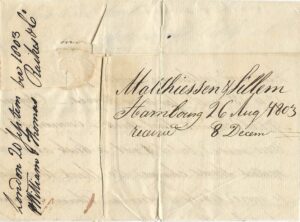 London 20 September 1803
William & Thomas
Raikes & Co
Matthiessen & Sillem
Hambourg 26 Aug 1803
receivd 8 Decem